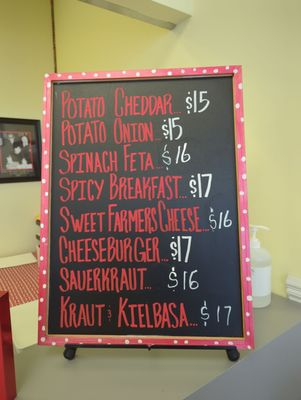 POTATO CHEDDAR... $15
POTATO ONION... $15
SPINACH FETA... $16
SPICY BREAKFAST... $17
SWEET FARMERS CHEESE... $16
CHEESEBURGER... $17
SAUERKRAUT... $16
KRAUT & KIELBASA... $17